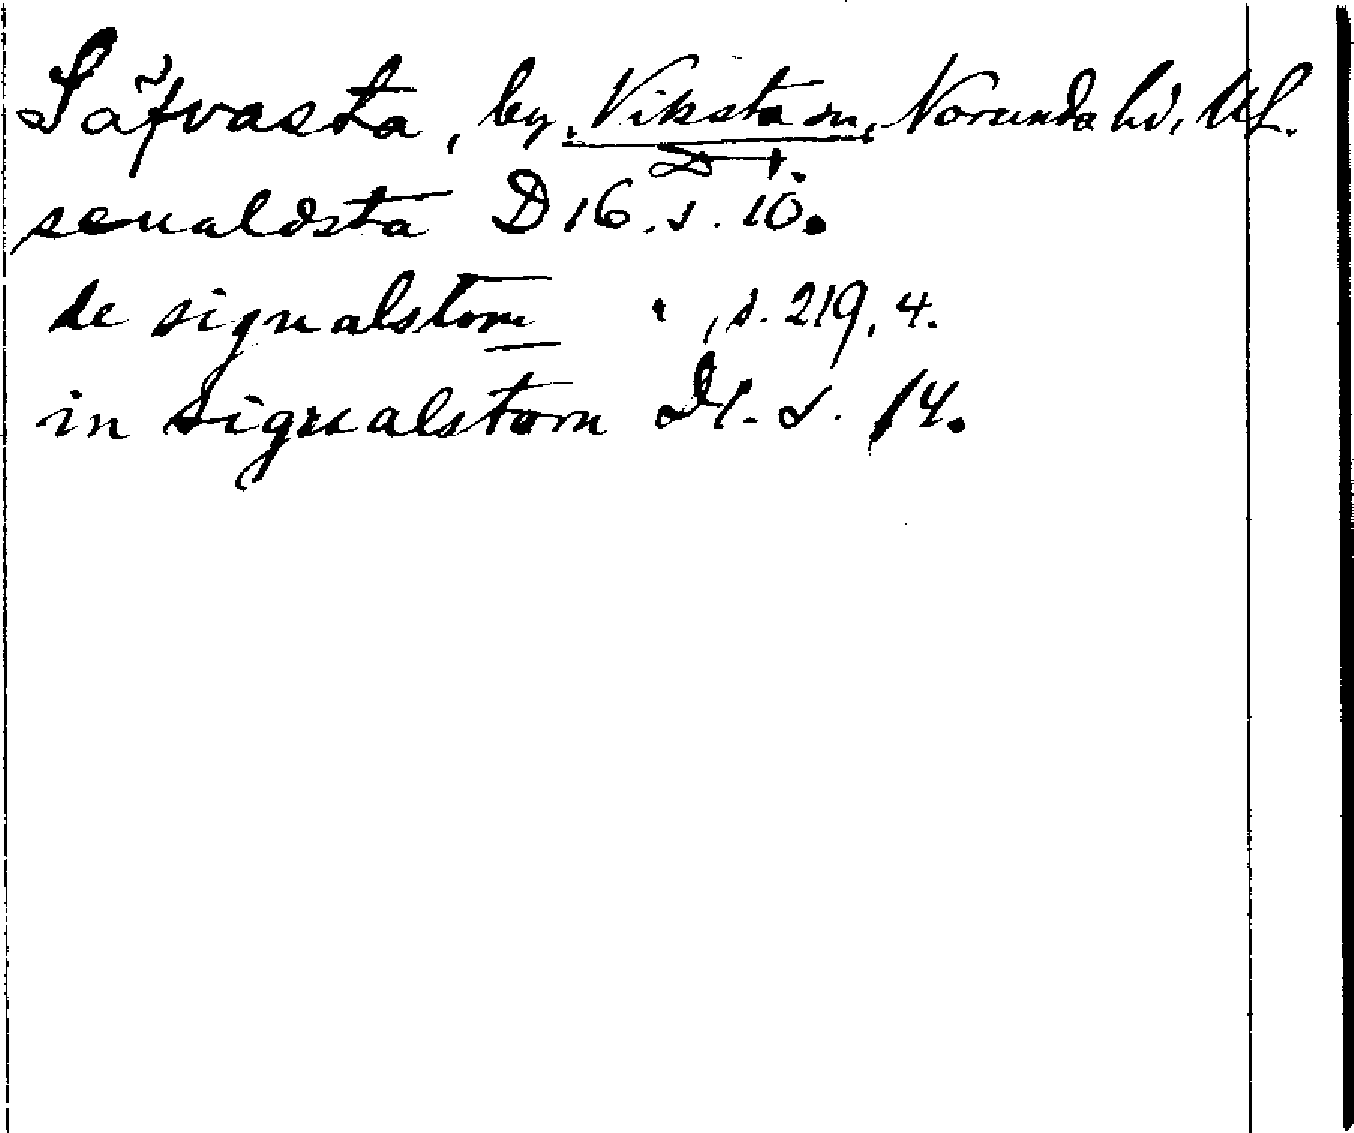 Säfvasta, by, Viksta sn, Norunda hd, Upl.
seualdsta D 16. s. 10.
de sigualstom " , s. 219, 4.
in sigualstom Dl. s. 14.